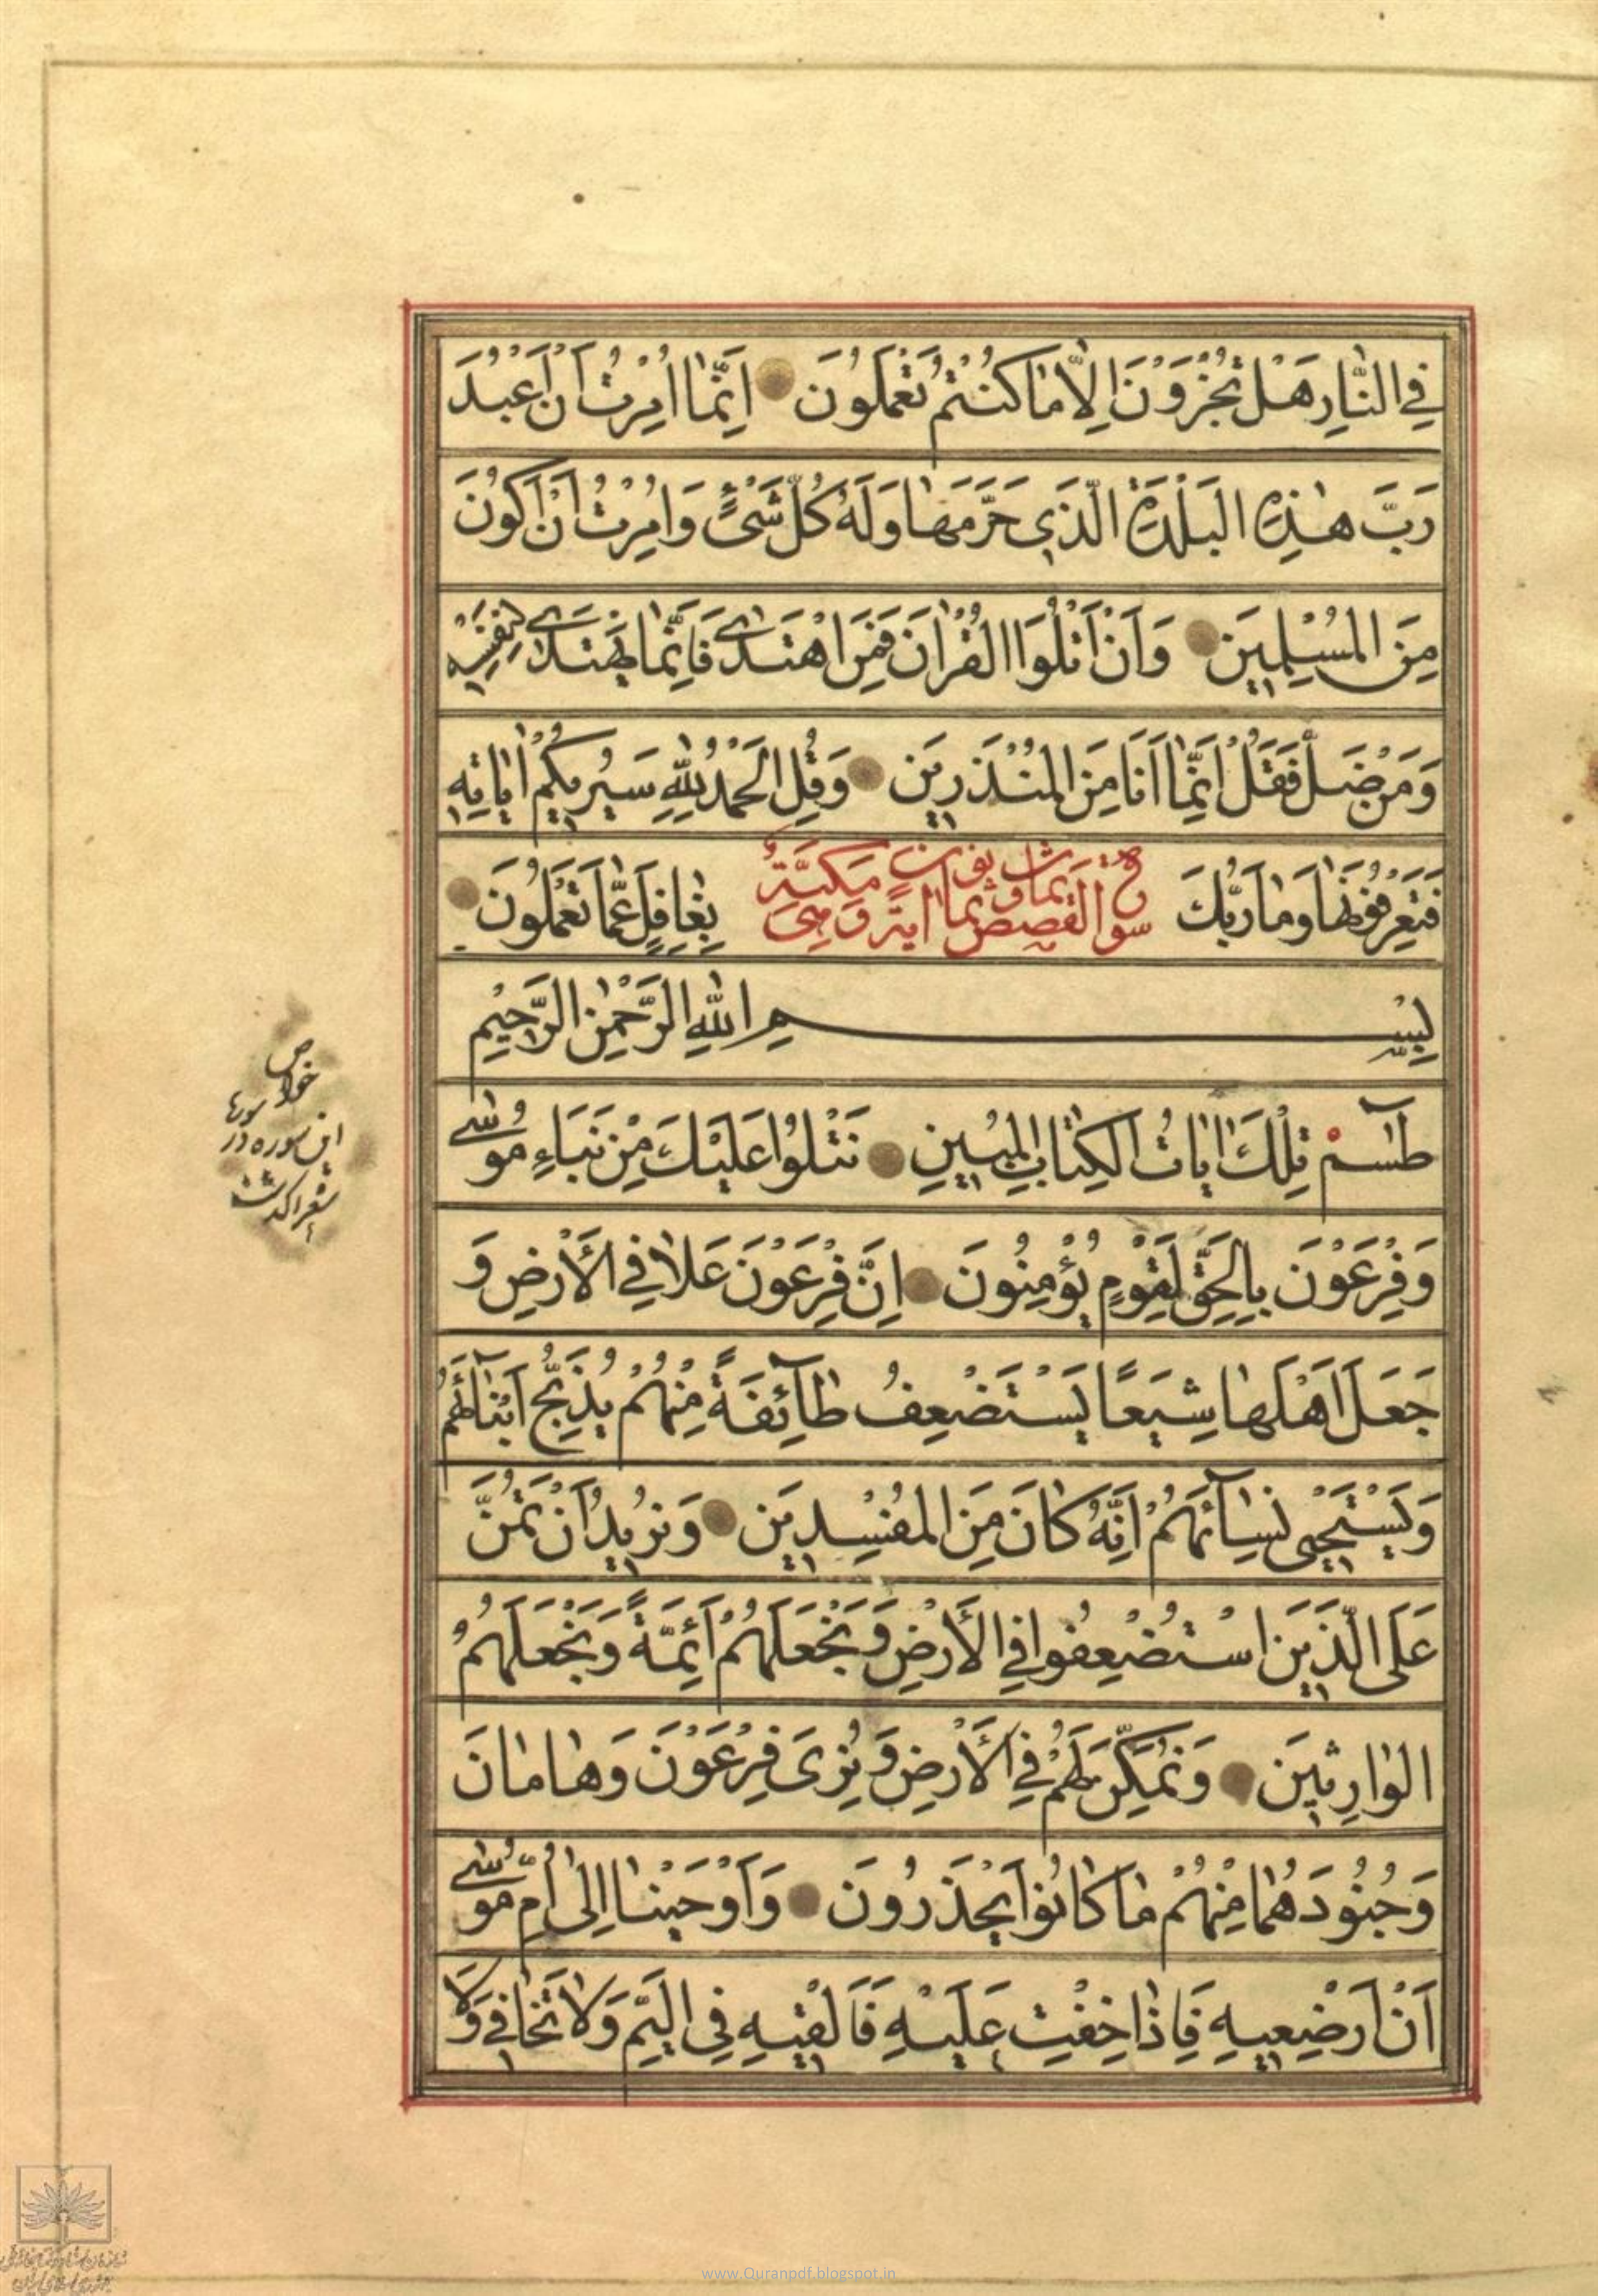 فِي النَّارِ هَلْ تُجْزَوْنَ اِلاّٰ مٰا كُنْتُمْ تَعْمَلُونَ اِنَّمٰا اُمِرْتُ اَنْ اَعْبُدَ
رَبَّ هٰذِهِ الْبَلْدَةِ الَّذِي حَرَّمَهٰا وَلَهُ كُلُّ شَيْءٍ وَاُمِرْتُ اَنْ اَكُونَ
مِنَ الْمُسْلِمِينَ وَاَنْ اَتْلُوَا الْقُرْاٰنَ فَمَنِ اهْتَدىٰ فَاِنَّمٰا يَهْتَدِي لِنَفْسِهِ
وَمَنْ ضَلَّ فَقُلْ اِنَّمٰا اَنَا مِنَ الْمُنْذِرِينَ وَقُلِ الْحَمْدُ لِلّٰهِ سَيُرِيكُمْ اٰيٰاتِهِ
فَتَعْرِفُونَهٰا وَمٰا رَبُّكَ بِغٰافِلٍ عَمّٰا تَعْمَلُونَ
القصص ثمان وثمانون اية وهي مكيّة
بِسْمِ اللّٰهِ الرَّحْمٰنِ الرَّحِيمِ
طٰسٓمٓ تِلْكَ اٰيٰاتُ الْكِتٰابِ الْمُبِينِ نَتْلُوا عَلَيْكَ مِنْ نَبَاءِ مُوسىٰ
وَفِرْعَوْنَ بِالْحَقِّ لِقَوْمٍ يُؤْمِنُونَ اِنَّ فِرْعَوْنَ عَلاٰ فِي الْاَرْضِ وَ
جَعَلَ اَهْلَهٰا شِيَعًا يَسْتَضْعِفُ طٰآئِفَةً مِنْهُمْ يُذَبِّحُ اَبْنٰآئَهُمْ
وَيَسْتَحْيِي نِسٰآئَهُمْ اِنَّهُ كٰانَ مِنَ الْمُفْسِدِينَ وَنُرِيدُ اَنْ نَمُنَّ
عَلَى الَّذِينَ اسْتُضْعِفُوا فِي الْاَرْضِ وَنَجْعَلَهُمْ اَئِمَّةً وَنَجْعَلَهُمُ
الْوٰارِثِينَ وَنُمَكِّنَ لَهُمْ فِي الْاَرْضِ وَنُرِىَ فِرْعَوْنَ وَهٰامٰانَ
وَجُنُودَهُمٰا مِنْهُمْ مٰا كٰانُوا يَحْذَرُونَ وَاَوْحَيْنٰا اِلىٰ اُمِّ مُوسىٰ
اَنْ اَرْضِعِيهِ فَاِذٰا خِفْتِ عَلَيْهِ فَاَلْقِيهِ فِي الْيَمِّ وَلاٰ تَخٰافِي وَلاٰ
خواص
این سوره در
www.Quranpdf.blogspot.in